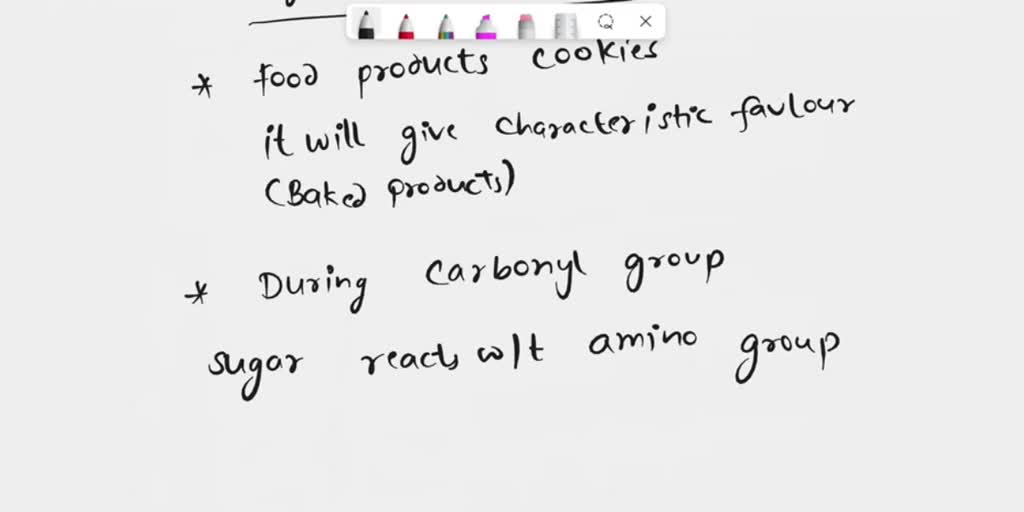 * food products cookies
it will give characteristic favlour
(Baked products)
* During carbonyl group
sugar reacts w/t amino group